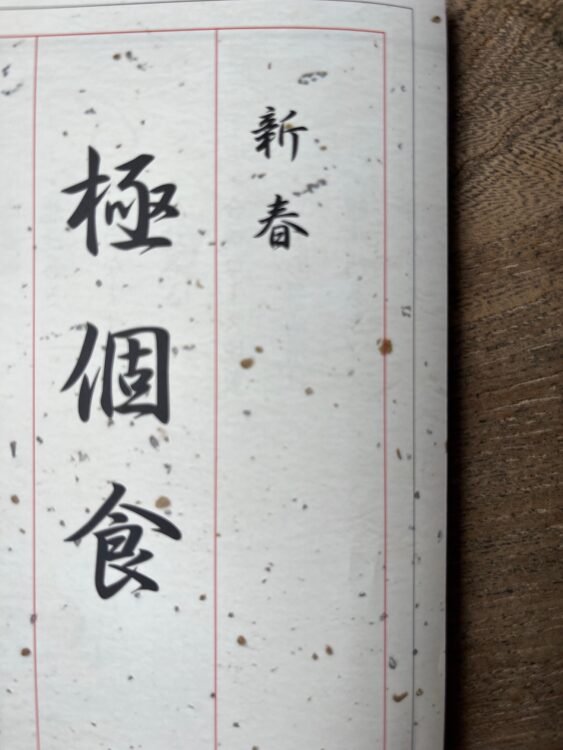 新春
極個食